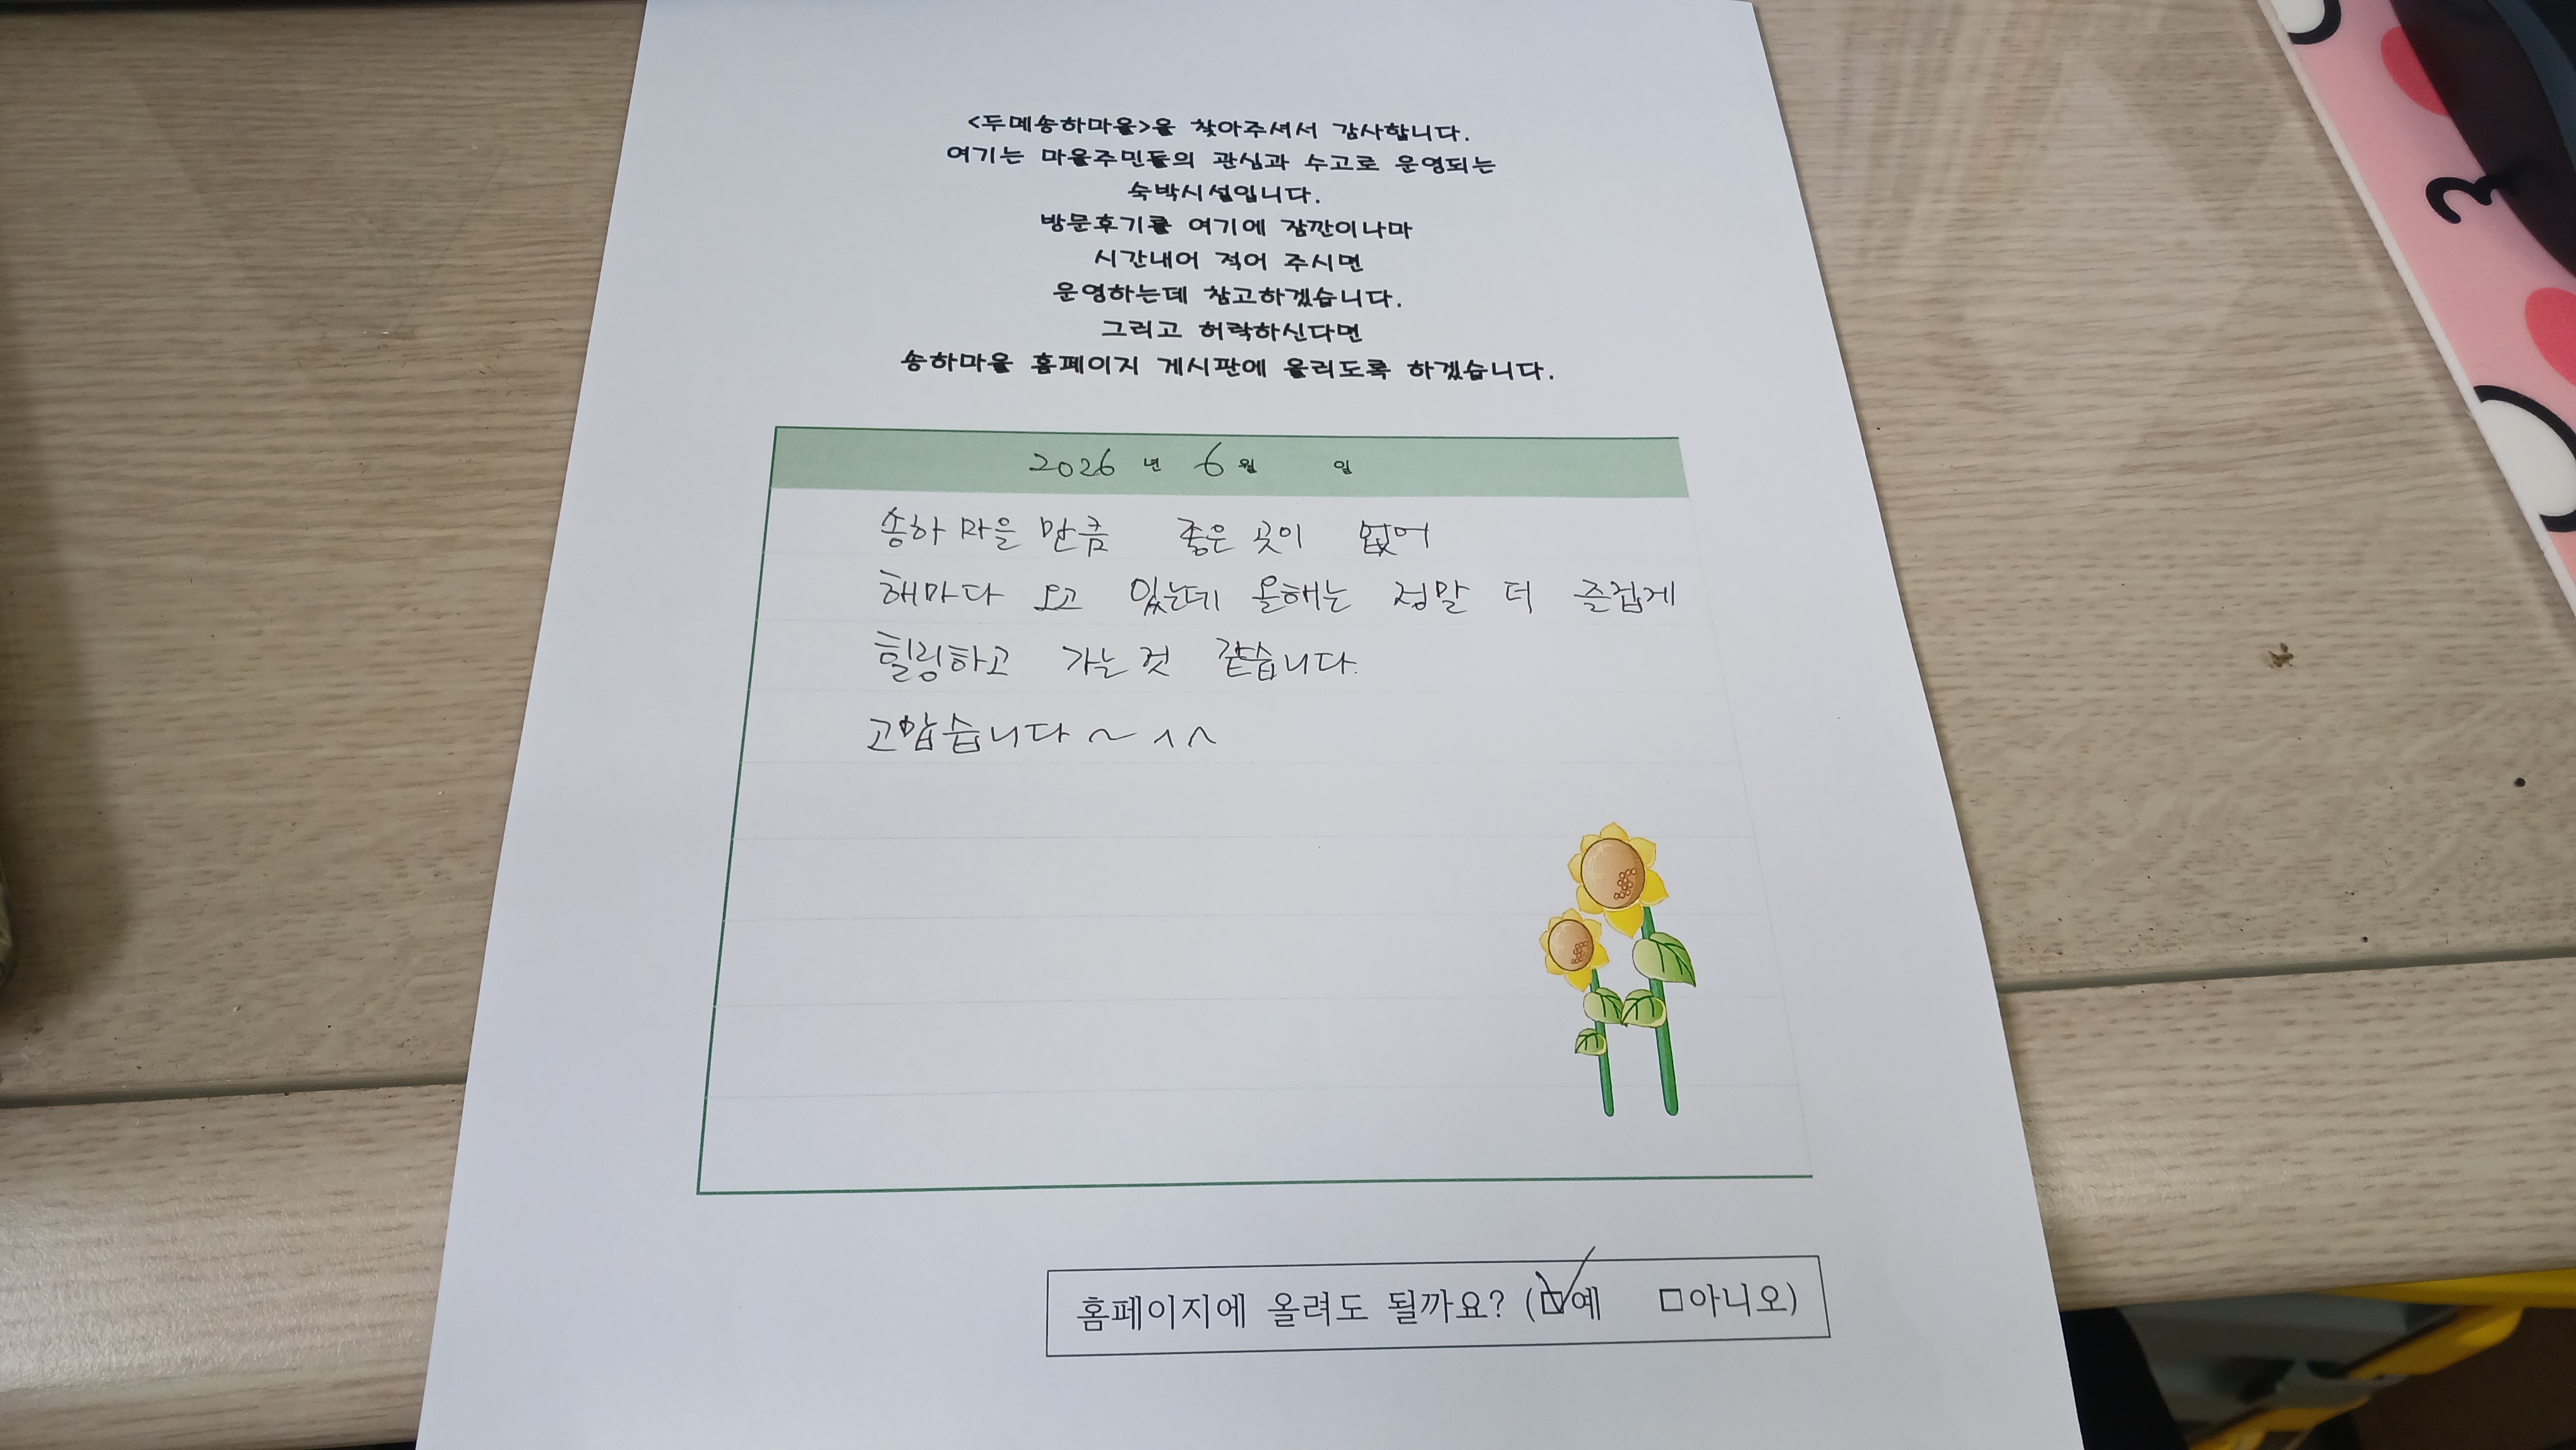 <두메송하마을>을 찾아주셔서 감사합니다.
여기는 마을주민들의 관심과 수고로 운영되는
숙박시설입니다.
방문후기를 여기에 잠깐이나마
시간내어 적어 주시면
운영하는데 참고하겠습니다.
그리고 허락하신다면
송하마을 홈페이지 게시판에 올리도록 하겠습니다.
2026 년 6 월 일
송하마을 만큼 좋은 곳이 없어
해마다 오고 있는데 올해는 정말 더 즐겁게
힐링하고 가는것 같습니다.
고맙습니다~ ^^
홈페이지에 올려도 될까요? (☑예 □아니오)